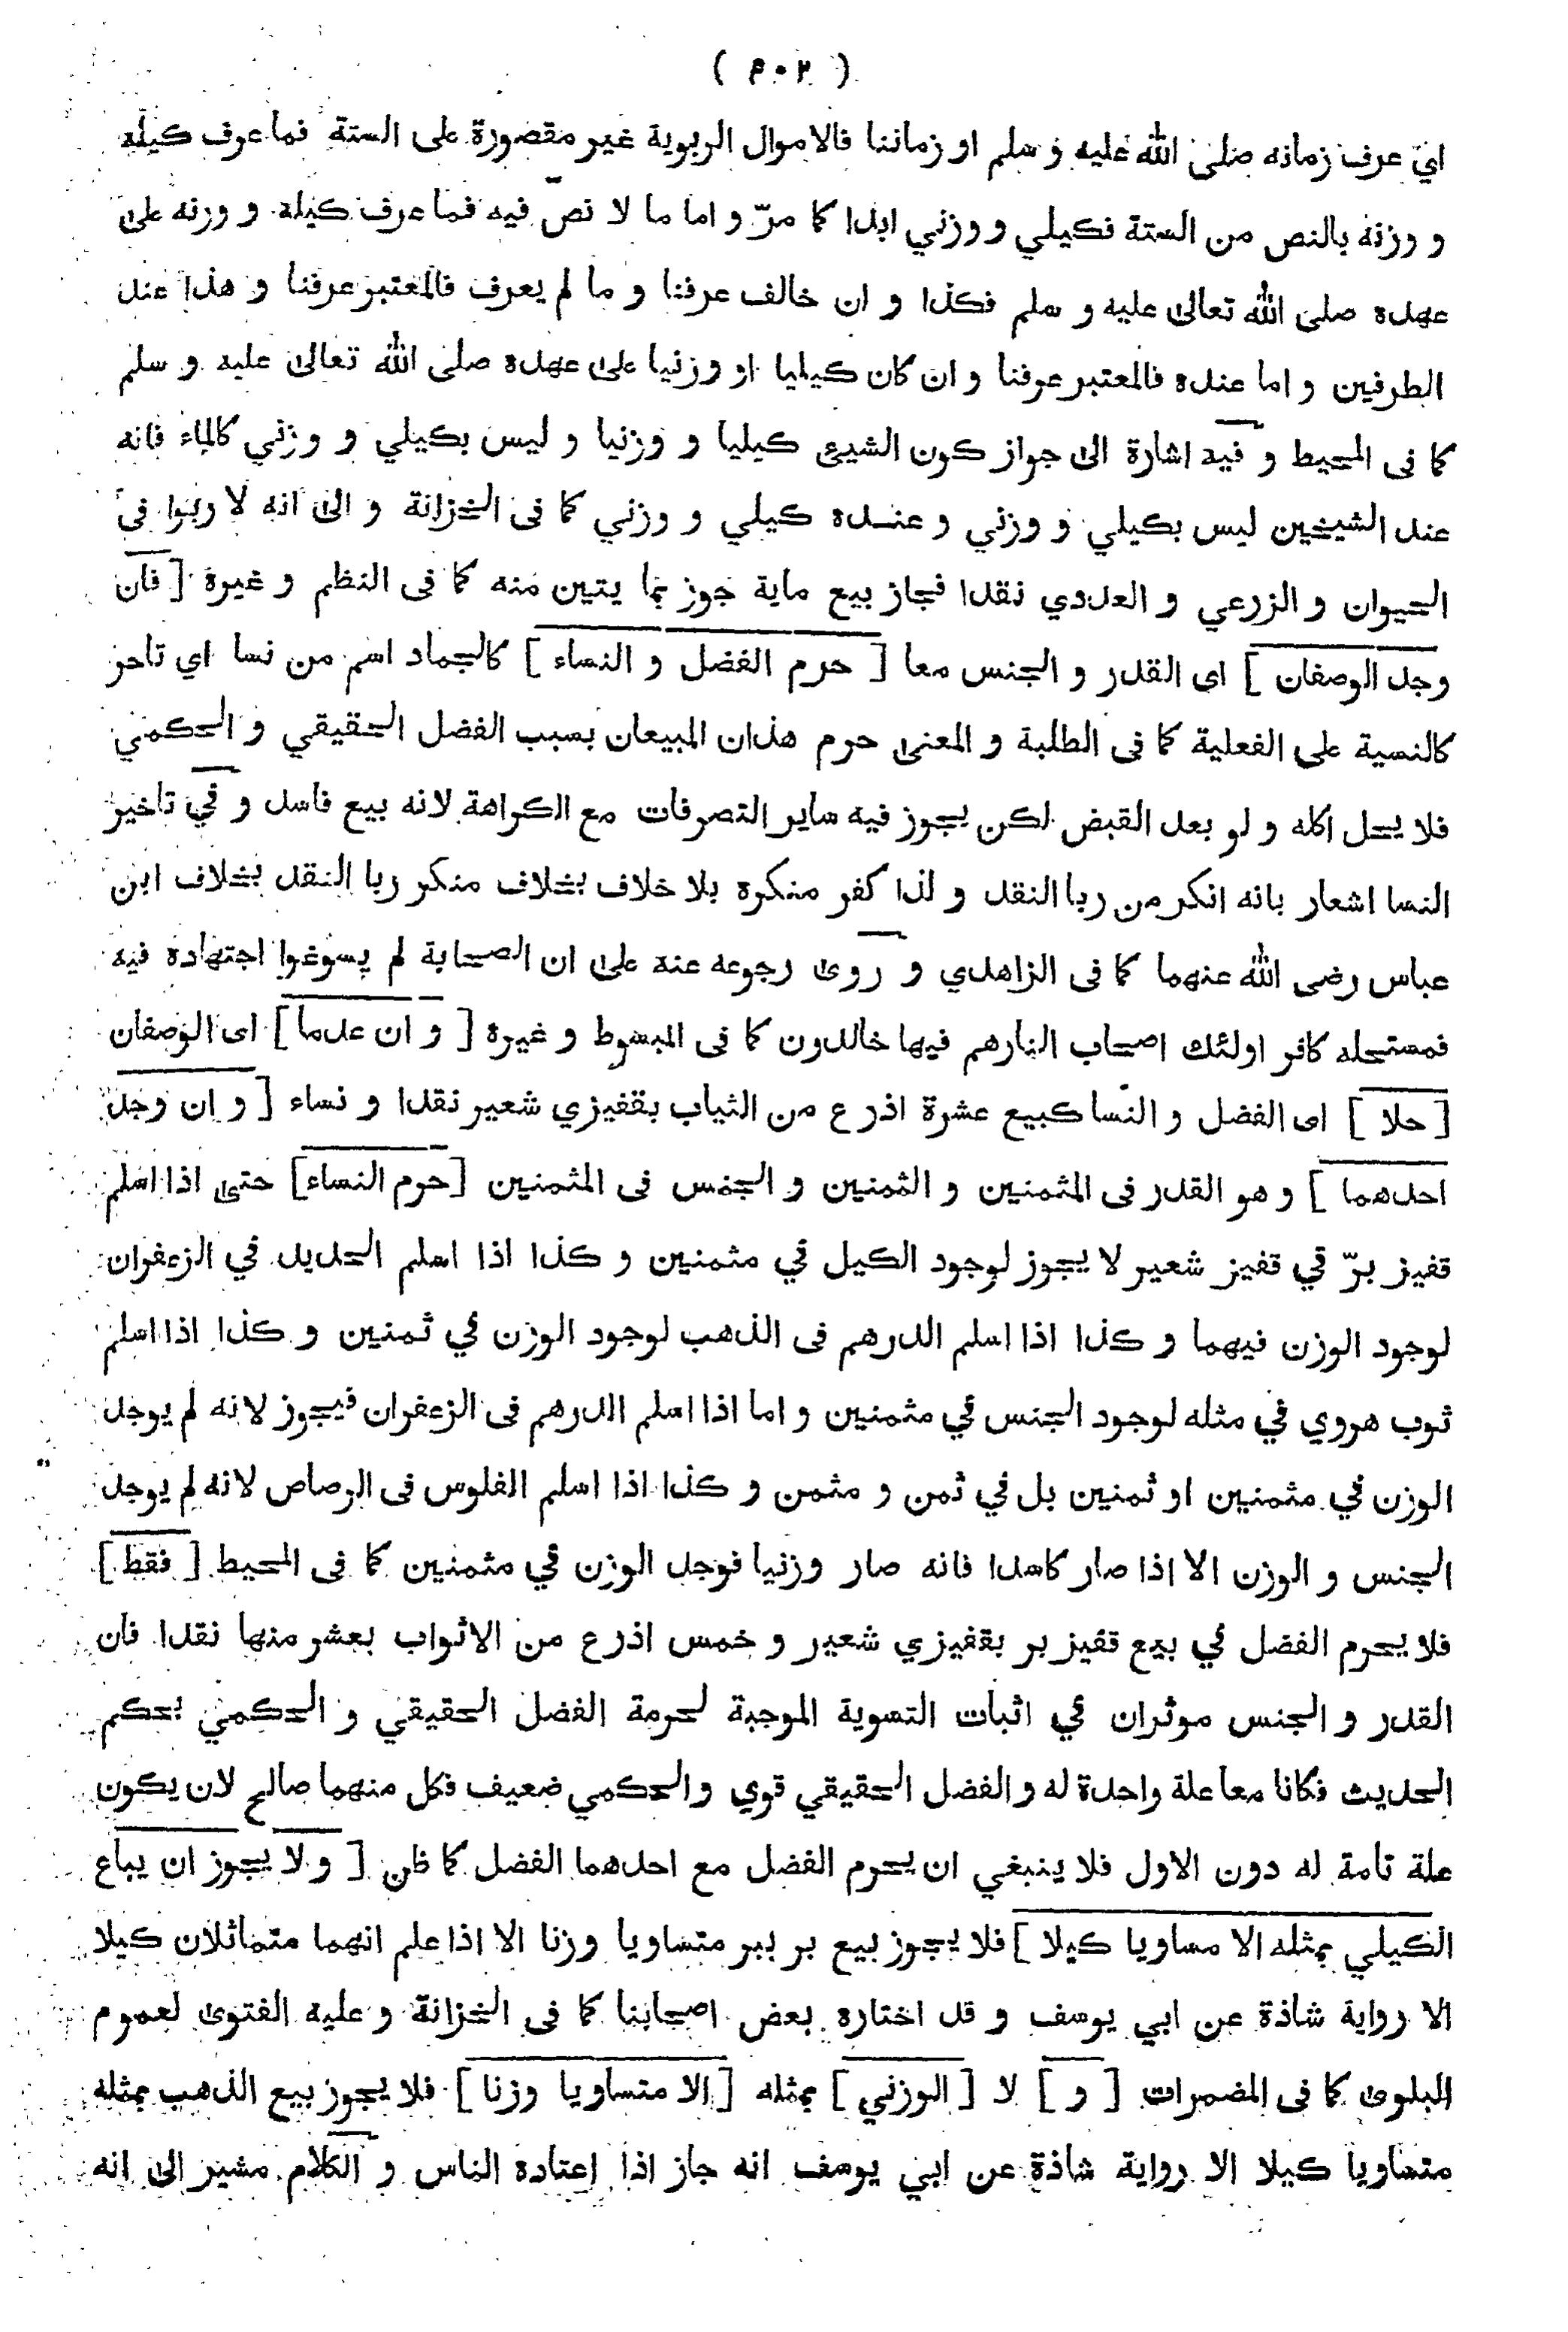 ( ٤٠٢ )
اي عرف زمانه صلى الله عليه و سلم او زماننا فالاموال الربوية غير مقصورة على الستة فما عرف كيله
و وزنه بالنص من الستة فكيلي و وزني ابدا كما مرّ و اما ما لا نصّ فيه فما عرف كيله و وزنه على
عهده صلى الله تعالى عليه و سلم فكذا و ان خالف عرفنا و ما لم يعرف فالمعتبر عرفنا و هذا عند
الطرفين و اما عنده فالمعتبر عرفنا و ان كان كيليا او وزنيا على عهده صلى الله تعالى عليه و سلم
كما فى المحيط و فيه اشارة الى جواز كون الشيئ كيليا و وزنيا و ليس بكيلي و وزني كالماء فانه
عند الشيخين ليس بكيلي و وزني و عنده كيلي و وزني كما فى الخزانة و الى انه لا ربوا فى
الحيوان و الزرعي و العددي نقدا فجاز بيع ماية جوز بما يتين منه كما فى النظم و غيره [ فان
وجد الوصفان ] اى القدر و الجنس معا [ حرم الفضل و النساء ] كالجماد اسم من نسا اي تاخر
كالنسية على الفعلية كما فى الطلبة و المعنى حرم هذان المبيعان بسبب الفضل الحقيقي و الحكمي
فلا يحل اكله و لو بعد القبض لكن يجوز فيه ساير التصرفات مع الكراهة لانه بيع فاسد و في تاخير
النسا اشعار بانه انكر من ربا النقد و لذا كفر منكره بلا خلاف بخلاف منكر ربا النقد بخلاف ابن
عباس رضى الله عنهما كما فى الزاهدي و روى رجوعه عنه على ان الصحابة لم يسوغوا اجتهاده فيه
فمستحله كافر اولئك اصحاب النارهم فيها خالدون كما فى المبسوط و غيره [ و ان عدما ] اى الوصفان
[ حلا ] اى الفضل و النسا كبيع عشرة اذرع من الثياب بقفيزي شعير نقدا و نساء [ و ان وجد
احدهما ] و هو القدر فى المثمنين و الثمنين و الجنس فى المثمنين [ حرم النساء ] حتى اذا اسلم
قفيز برّ في قفيز شعير لا يجوز لوجود الكيل في مثمنين و كذا اذا اسلم الحديد في الزعفران
لوجود الوزن فيهما و كذا اذا اسلم الدرهم فى الذهب لوجود الوزن في ثمنين و كذا اذا اسلم
ثوب هروي في مثله لوجود الجنس في مثمنين و اما اذا اسلم الدرهم فى الزعفران فيجوز لانه لم يوجد
الوزن في مثمنين او ثمنين بل في ثمن و مثمن و كذا اذا اسلم الفلوس فى الرصاص لانه لم يوجد
الجنس و الوزن الا اذا صار كاسدا فانه صار وزنيا فوجد الوزن في مثمنين كما فى المحيط [ فقط ]
فلا يحرم الفضل في بيع قفيز بر بقفيزي شعير و خمس اذرع من الاثواب بعشر منها نقدا فان
القدر و الجنس موثران في اثبات التسوية الموجبة لحرمة الفضل الحقيقي و الحكمي بحكم
الحديث فكانا معا علة واحدة له و الفضل الحقيقي قوي والحكمي ضعيف فكل منهما صالح لان يكون
علة تامة له دون الاول فلا ينبغي ان يحرم الفضل مع احدهما الفضل كما ظن [ و لا يجوز ان يباع
الكيلي بمثله الا مساويا كيلا ] فلا يجوز بيع بر ببر متساويا وزنا الا اذا علم انهما متماثلان كيلا
الا رواية شاذة عن ابي يوسف و قد اختاره بعض اصحابنا كما فى الخزانة و عليه الفتوى لعموم
البلوى كما فى المضمرات [ و ] لا [ الوزني ] بمثله [ الا متساويا وزنا ] فلا يجوز بيع الذهب بمثله
متساويا كيلا الا رواية شاذة عن ابي يوسف انه جاز اذا اعتاده الناس و الكلام مشير الى انه